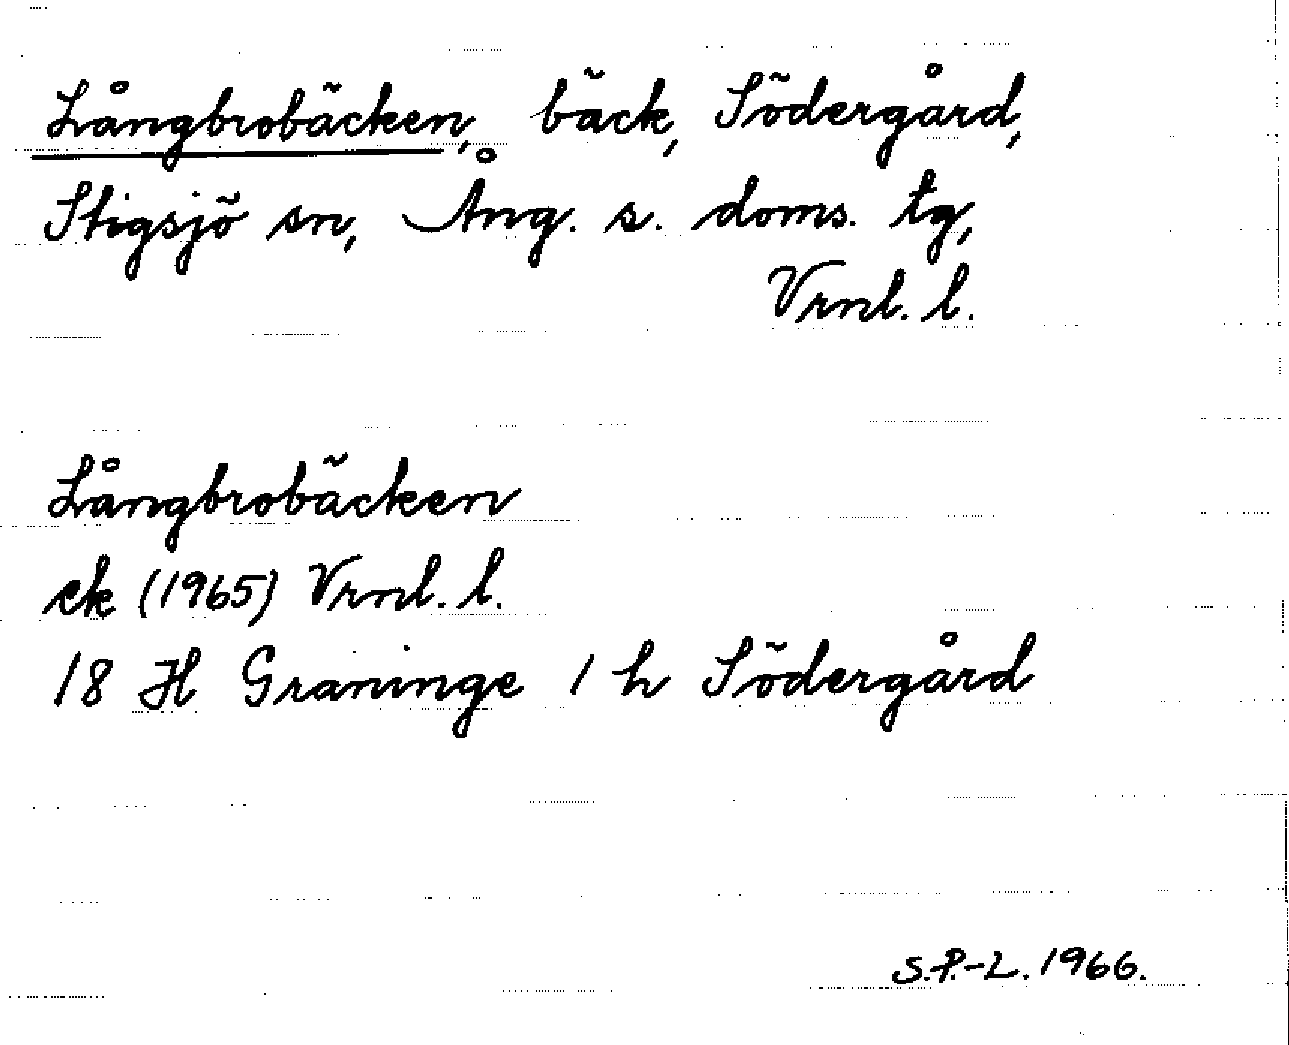 Långbrobäcken, bäck, Södergård,
Stigsjö sn, Ång. s. doms. tg,
Vrnl. l.
Långbrobäcken
ek (1965) Vrnl. l.
18 H Graninge 1 h Södergård
S.P.-L. 1966.